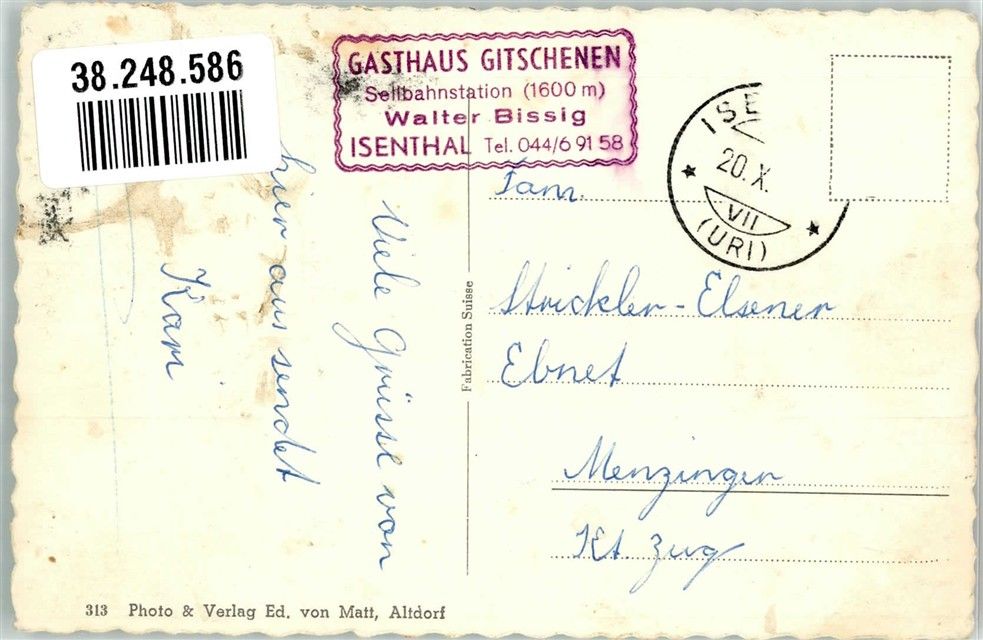 38.248.586
GASTHAUS GITSCHENEN
Seilbahnstation (1600 m)
Walter Bissig
ISENTHAL Tel. 044/6 91 58
ISE
20.X.
VII
(URI)
Viele Grüsse von
hier aus sendet
Kari
Fabrication Suisse
Fam.
Strickler-Elsener
Ebnet
Menzingen
Kt. Zug
313 Photo & Verlag Ed. von Matt, Altdorf